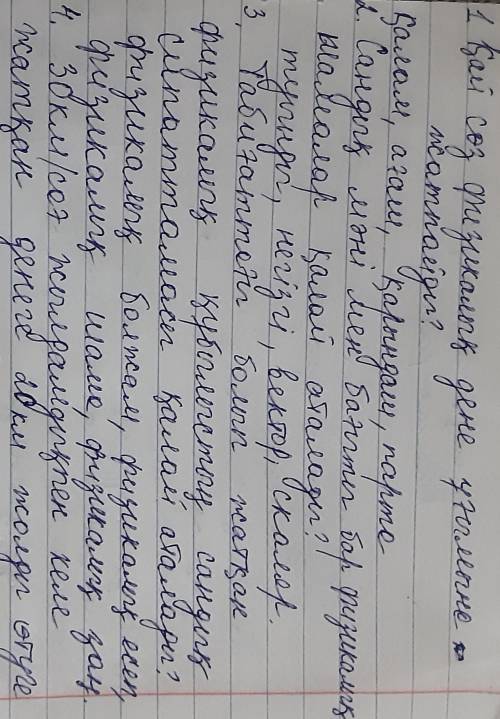 1 Қай сөз физикалық дене ұғымына
жатпайды?
Қалам, ағаш, қарындаш, парта
2. Сандық мәні мен бағыты бар физикалық
шамалар қалай аталады?
туынды, негізгі, вектор, скаляр.
3. Табиғаттағы болып жатқан
физикалық құбылыстың сандық
сипаттамасы қалай аталады?
физикалық болжам, физикалық есеп,
физикалық шама, физикалық заң.
4. 36км/сағ жылдамдықпен келе
жатқан денеге 20км жолды өтуге